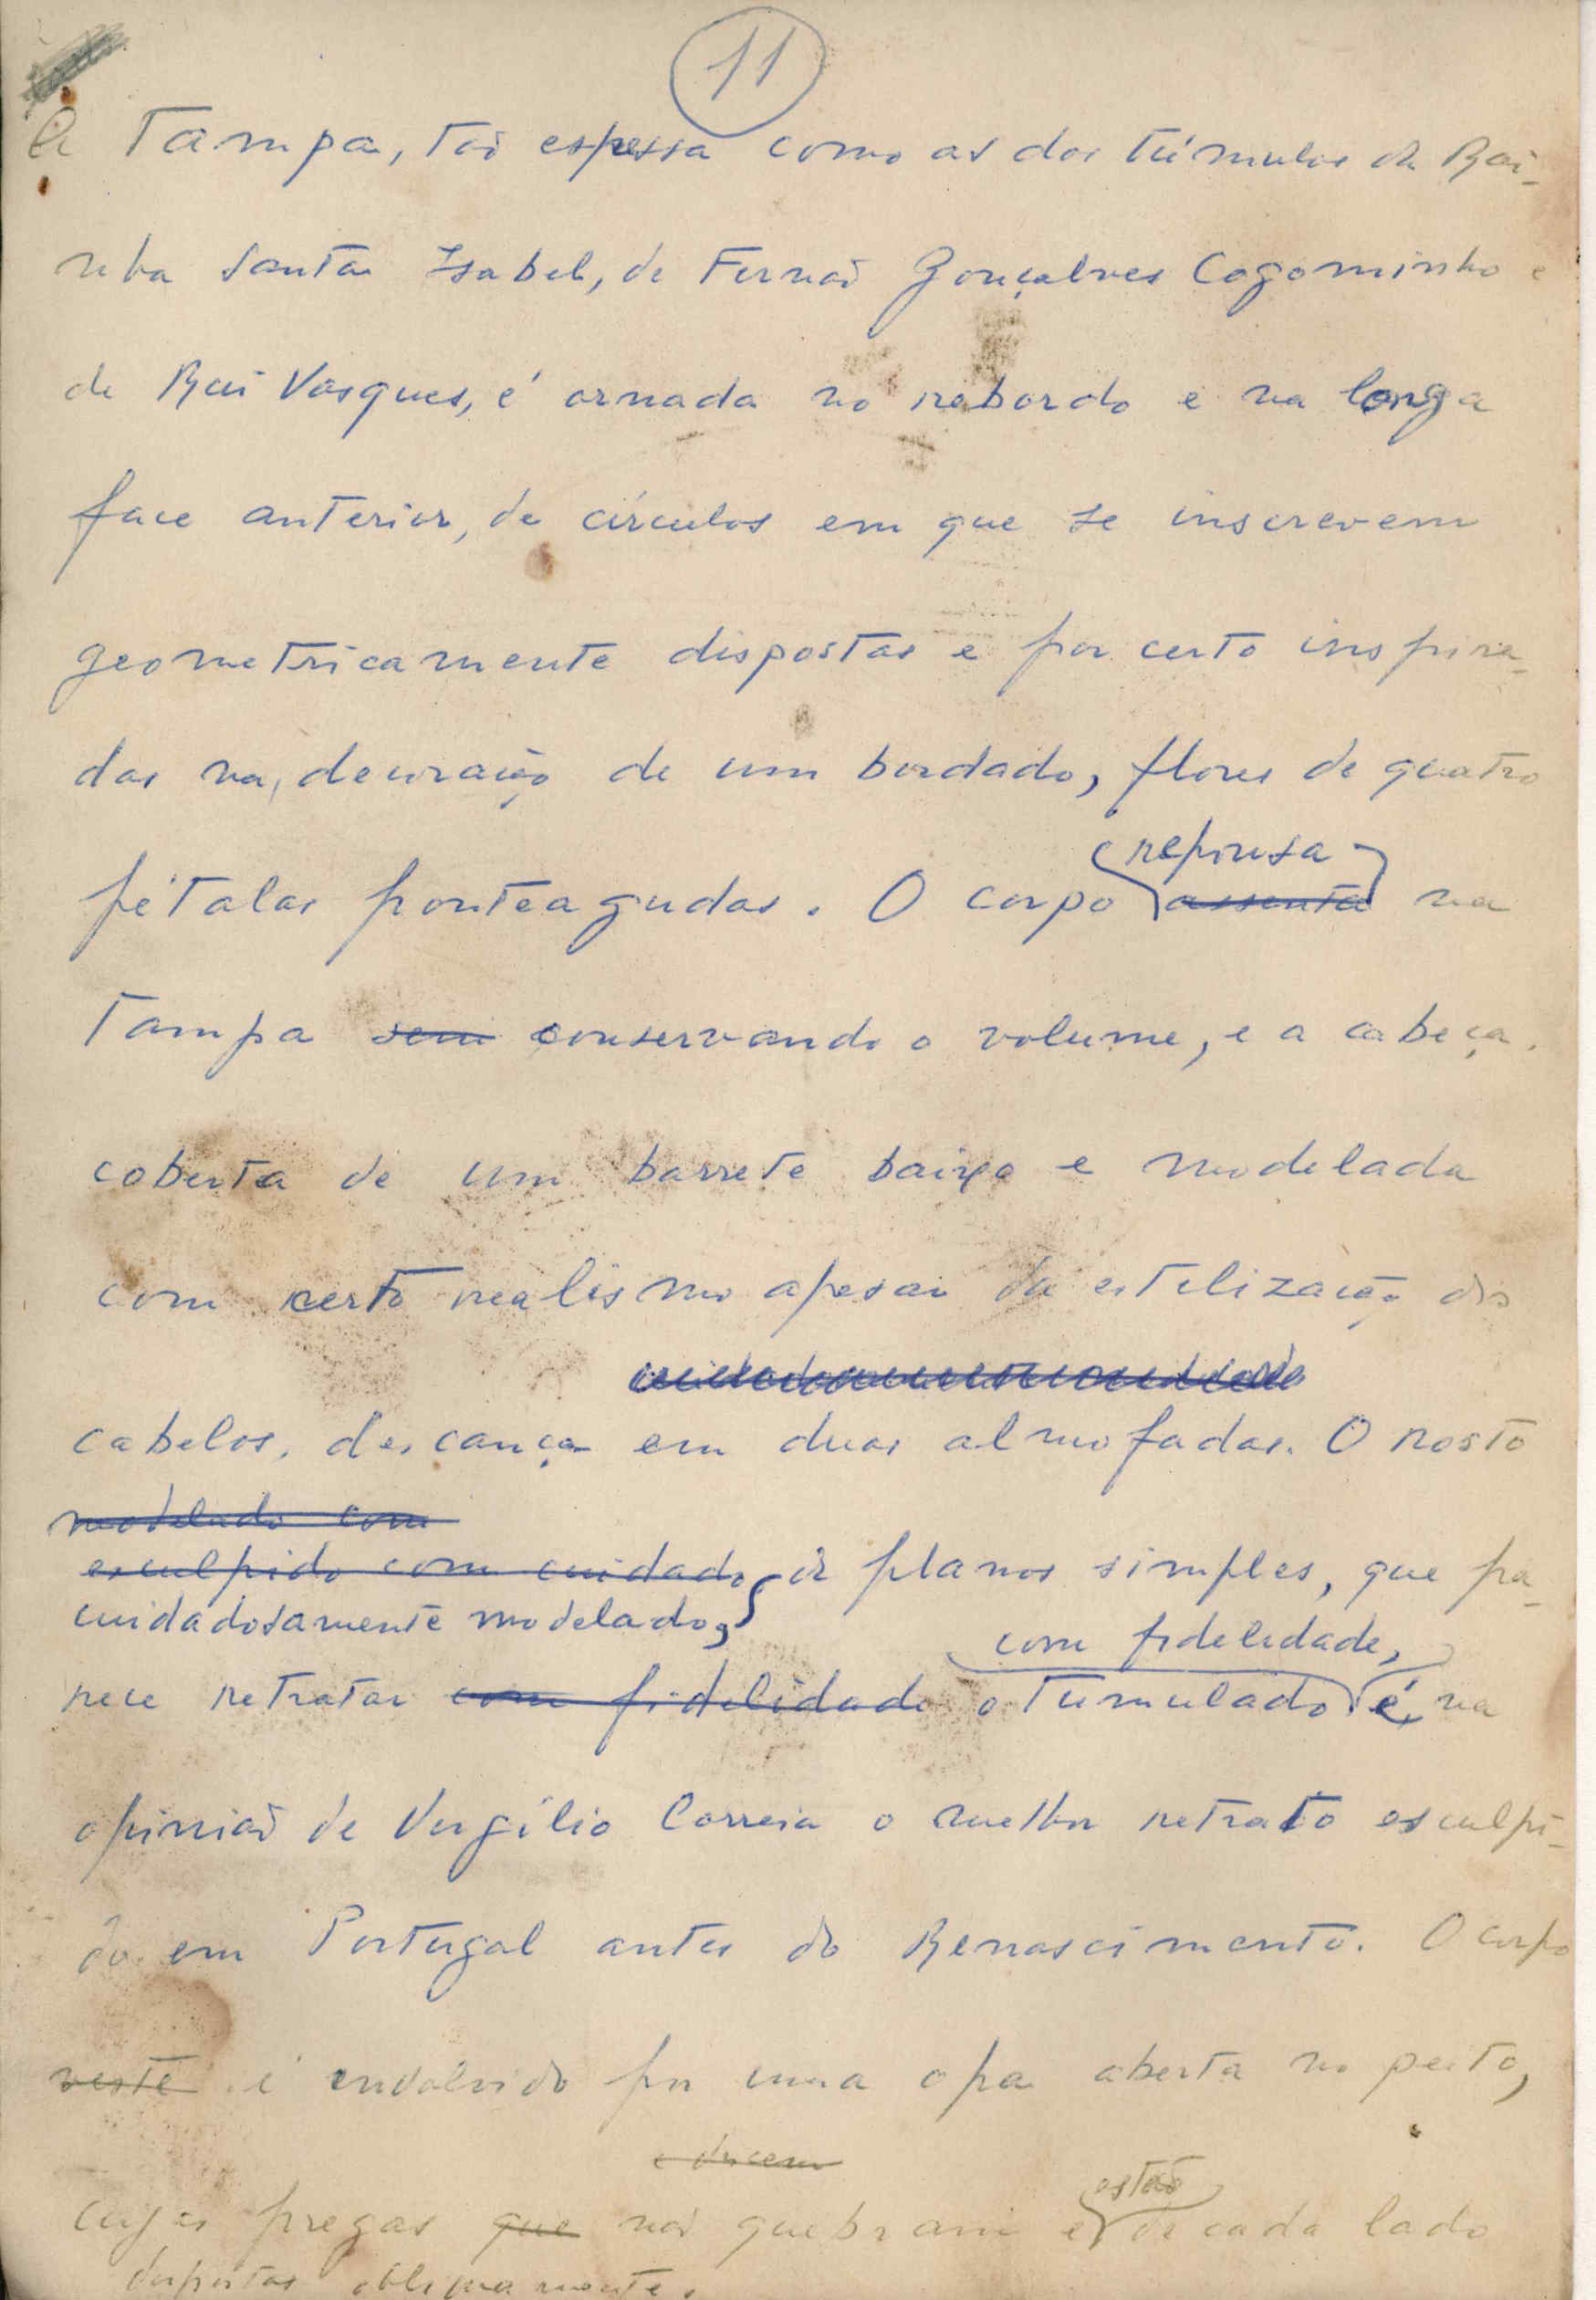 11
A Tampa, tão espessa como as dos túmulos da Rai-
nha Santa Isabel, de Fernão Gonçalves Cogominho e
de Rui Vasques, é ornada no rebordo e na longa
face anterior, de círculos em que se inscrevem
geometricamente dispostas e por certo inspira-
das na decoração de um bordado, flores de quatro
repousa
pétalas ponteagudas. O corpo assenta na
Tampa sem conservando o volume, e a cabeça,
coberta de um barrete baixo e modelada
com certo realismo apesar da estilização dos
cabelos, descança em duas almofadas. O rosto
modelado com
esculpido com cuidado, de planos simples, que pa-
cuidadosamente modelado,
com fidelidade,
rece retratar com fidelidade o tumulado é, na
opinião de Vergílio Correia o melhor retrato esculpi-
do em Portugal antes do Renascimento. O corpo
veste é envolvido por uma opa aberta no peito,
e descem
estão
cujas pregas que não quebram e de cada lado
dispostas obliquamente.